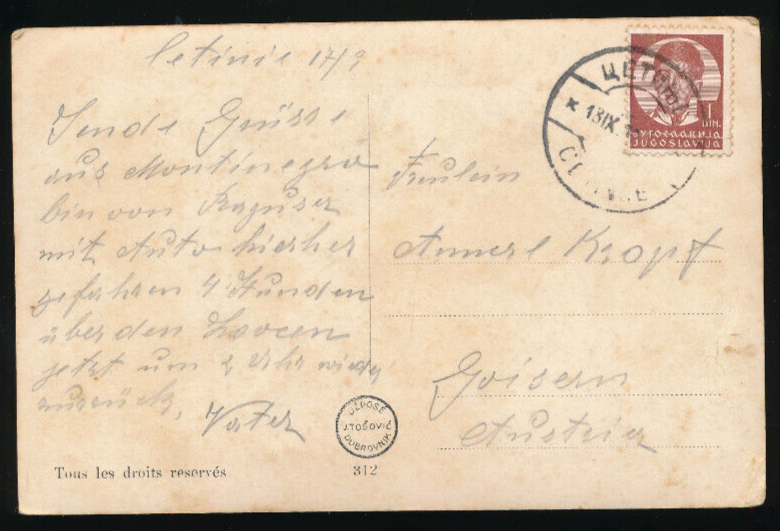 Cetinie 17/9
Sende Grüsse
aus Montinegro
bin von Raguser
mit Auto hierher
gefahren 4 Stunden
über den Lovcen
jetzt um 2 Uhr wieder
zurück,
Vater
Fräulein
Annerl Kropf
Goisern
Austria
* 13 IX
1
DIN.
ЈУГОСЛАВИЈА
JUGOSLAVIJA
J. TOŠOVIĆ
DUBROVNIK
312
Tous les droits reservés